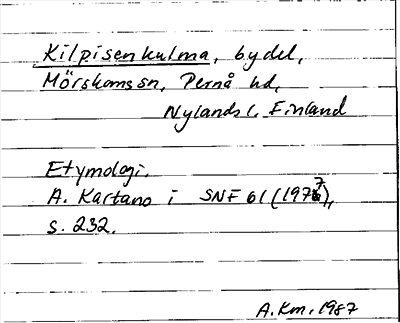 Kilpisenkulma, bydel,
Mörskomssn, Pernå hd,
Nylands l, Finland
Etymologi.
A. Kartano i SNF 61 (1977),
s. 232.
A.Km, 1987